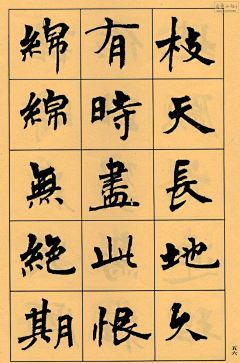 枝天長地久
有時盡此恨
綿綿無絶期
五六